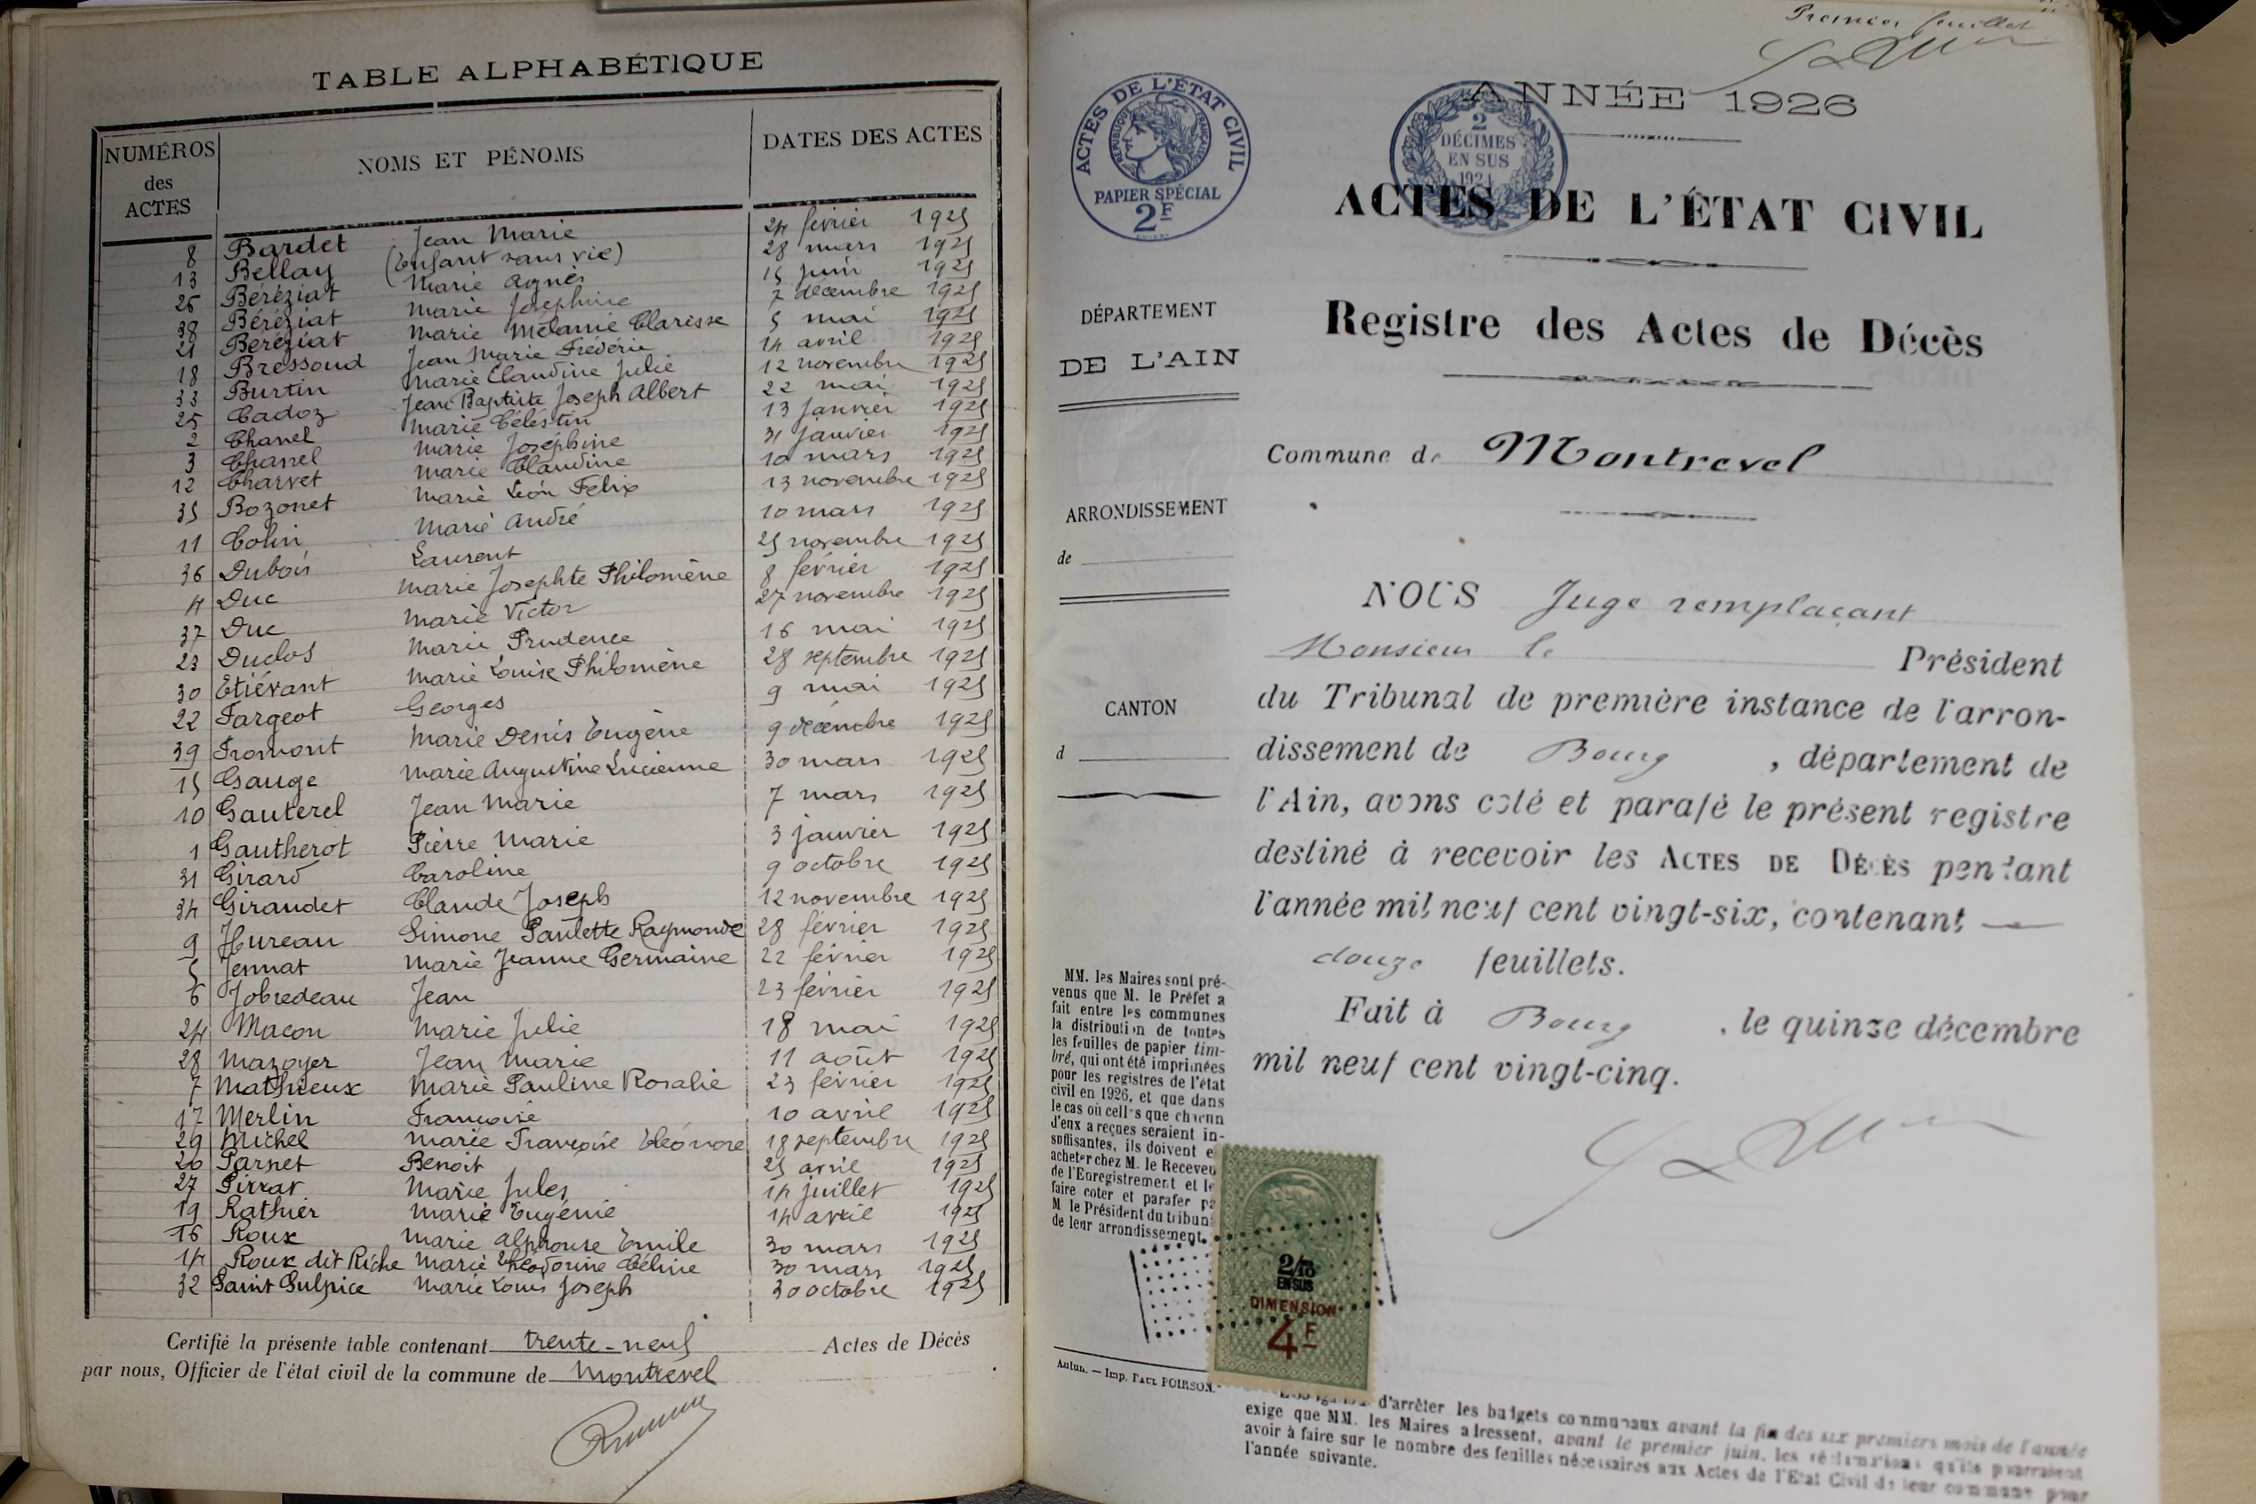 TABLE ALPHABÉTIQUE
NUMÉROS des ACTES NOMS ET PÉNOMS DATES DES ACTES
8 Bardet Jean Marie 24 février 1925
13 Bellay (Enfant sans vie) 28 mars 1925
26 Béréziat Marie Agnès 15 juin 1925
38 Béréziat Marie Joséphine 7 décembre 1925
21 Béréziat Marie Mélanie Clarisse 5 mai 1925
18 Bressoud Jean Marie Frédéric 14 avril 1925
33 Burtin Marie Claudine Julie 12 novembre 1925
25 Cadoz Jean Baptiste Joseph Albert 22 mai 1925
2 Chanel Marie Célestin 13 janvier 1925
3 Chanel Marie Joséphine 31 janvier 1925
12 Charvet Marie Claudine 10 mars 1925
35 Bozonet Marie Léon Félix 13 novembre 1925
11 Colin Marie André 10 mars 1925
36 Dubois Laurent 25 novembre 1925
4 Duc Marie Josephte Philomène 8 février 1925
37 Duc Marie Victor 27 novembre 1925
23 Duclos Marie Prudence 16 mai 1925
30 Etiévant Marie Louise Philomène 28 septembre 1925
22 Fargeot Georges 9 mai 1925
39 Fromont Marie Denis Eugène 9 décembre 1925
15 Gauge Marie Augustine Lucienne 30 mars 1925
10 Gauterel Jean Marie 7 mars 1925
1 Gautherot Pierre Marie 3 janvier 1925
31 Girard Caroline 9 octobre 1925
34 Giraudet Claude Joseph 12 novembre 1925
9 Hureau Simone Paulette Raymonde 28 février 1925
5 Jennat Marie Jeanne Germaine 22 février 1925
6 Jobredeau Jean 23 février 1925
24 Macon Marie Julie 18 mai 1925
28 Mazoyer Jean Marie 11 août 1925
7 Mathieux Marie Pauline Rosalie 23 février 1925
17 Merlin Françoise 10 avril 1925
29 Michel Marie Françoise Eléonore 18 septembre 1925
20 Parnet Benoit 25 avril 1925
27 Pirrat Marie Jules 14 juillet 1925
19 Rathier Marie Eugénie 14 avril 1925
16 Roux Marie Alphonse Emile 30 mars 1925
14 Roux dit Riche Marie Théodorine Céline 30 mars 1925
32 Saint Sulpice Marie Louis Joseph 30 octobre 1925
Certifié la présente table contenant trente-neuf Actes de Décès
par nous, Officier de l'état civil de la commune de Montrevel
Premier feuillet
ACTES DE L'ÉTAT CIVIL
RÉPUBLIQUE FRANÇAISE
PAPIER SPÉCIAL
2F
2
DÉCIMES
EN SUS
1924
ANNÉE 1926
ACTES DE L'ÉTAT CIVIL
Registre des Actes de Décès
Commune de Montrevel
DÉPARTEMENT
DE L'AIN
ARRONDISSEMENT
de
CANTON
d
NOUS Juge remplaçant
Monsieur le Président
du Tribunal de première instance de l'arron-
dissement de Bourg, département de
l'Ain, avons coté et parafé le présent registre
destiné à recevoir les ACTES DE DÉCÈS pendant
l'année mil neuf cent vingt-six, contenant
douze feuillets.
Fait à Bourg, le quinze décembre
mil neuf cent vingt-cinq.
MM. les Maires sont pré-
venus que M. le Préfet a
fait entre les communes
la distribution de toutes
les feuilles de papier tim-
bré, qui ont été imprimées
pour les registres de l'état
civil en 1926, et que dans
le cas où celles que chacun
d'eux a reçues seraient in-
suffisantes, ils doivent e
acheter chez M. le Receveu
de l'Enregistrement et le
faire coter et parafer pa
M le Président du tribuna
de leur arrondissement.
2/10
EN SUS
DIMENSION
4F
Autun. — Imp. PAUL POIRSON.
d'arrêter les budgets communaux avant la fin des six premiers mois de l'année
exige que MM. les Maires adressent, avant le premier juin, les réclamations qu'ils pourraient
avoir à faire sur le nombre des feuilles nécessaires aux Actes de l'Etat Civil de leur commune pour
l'année suivante.